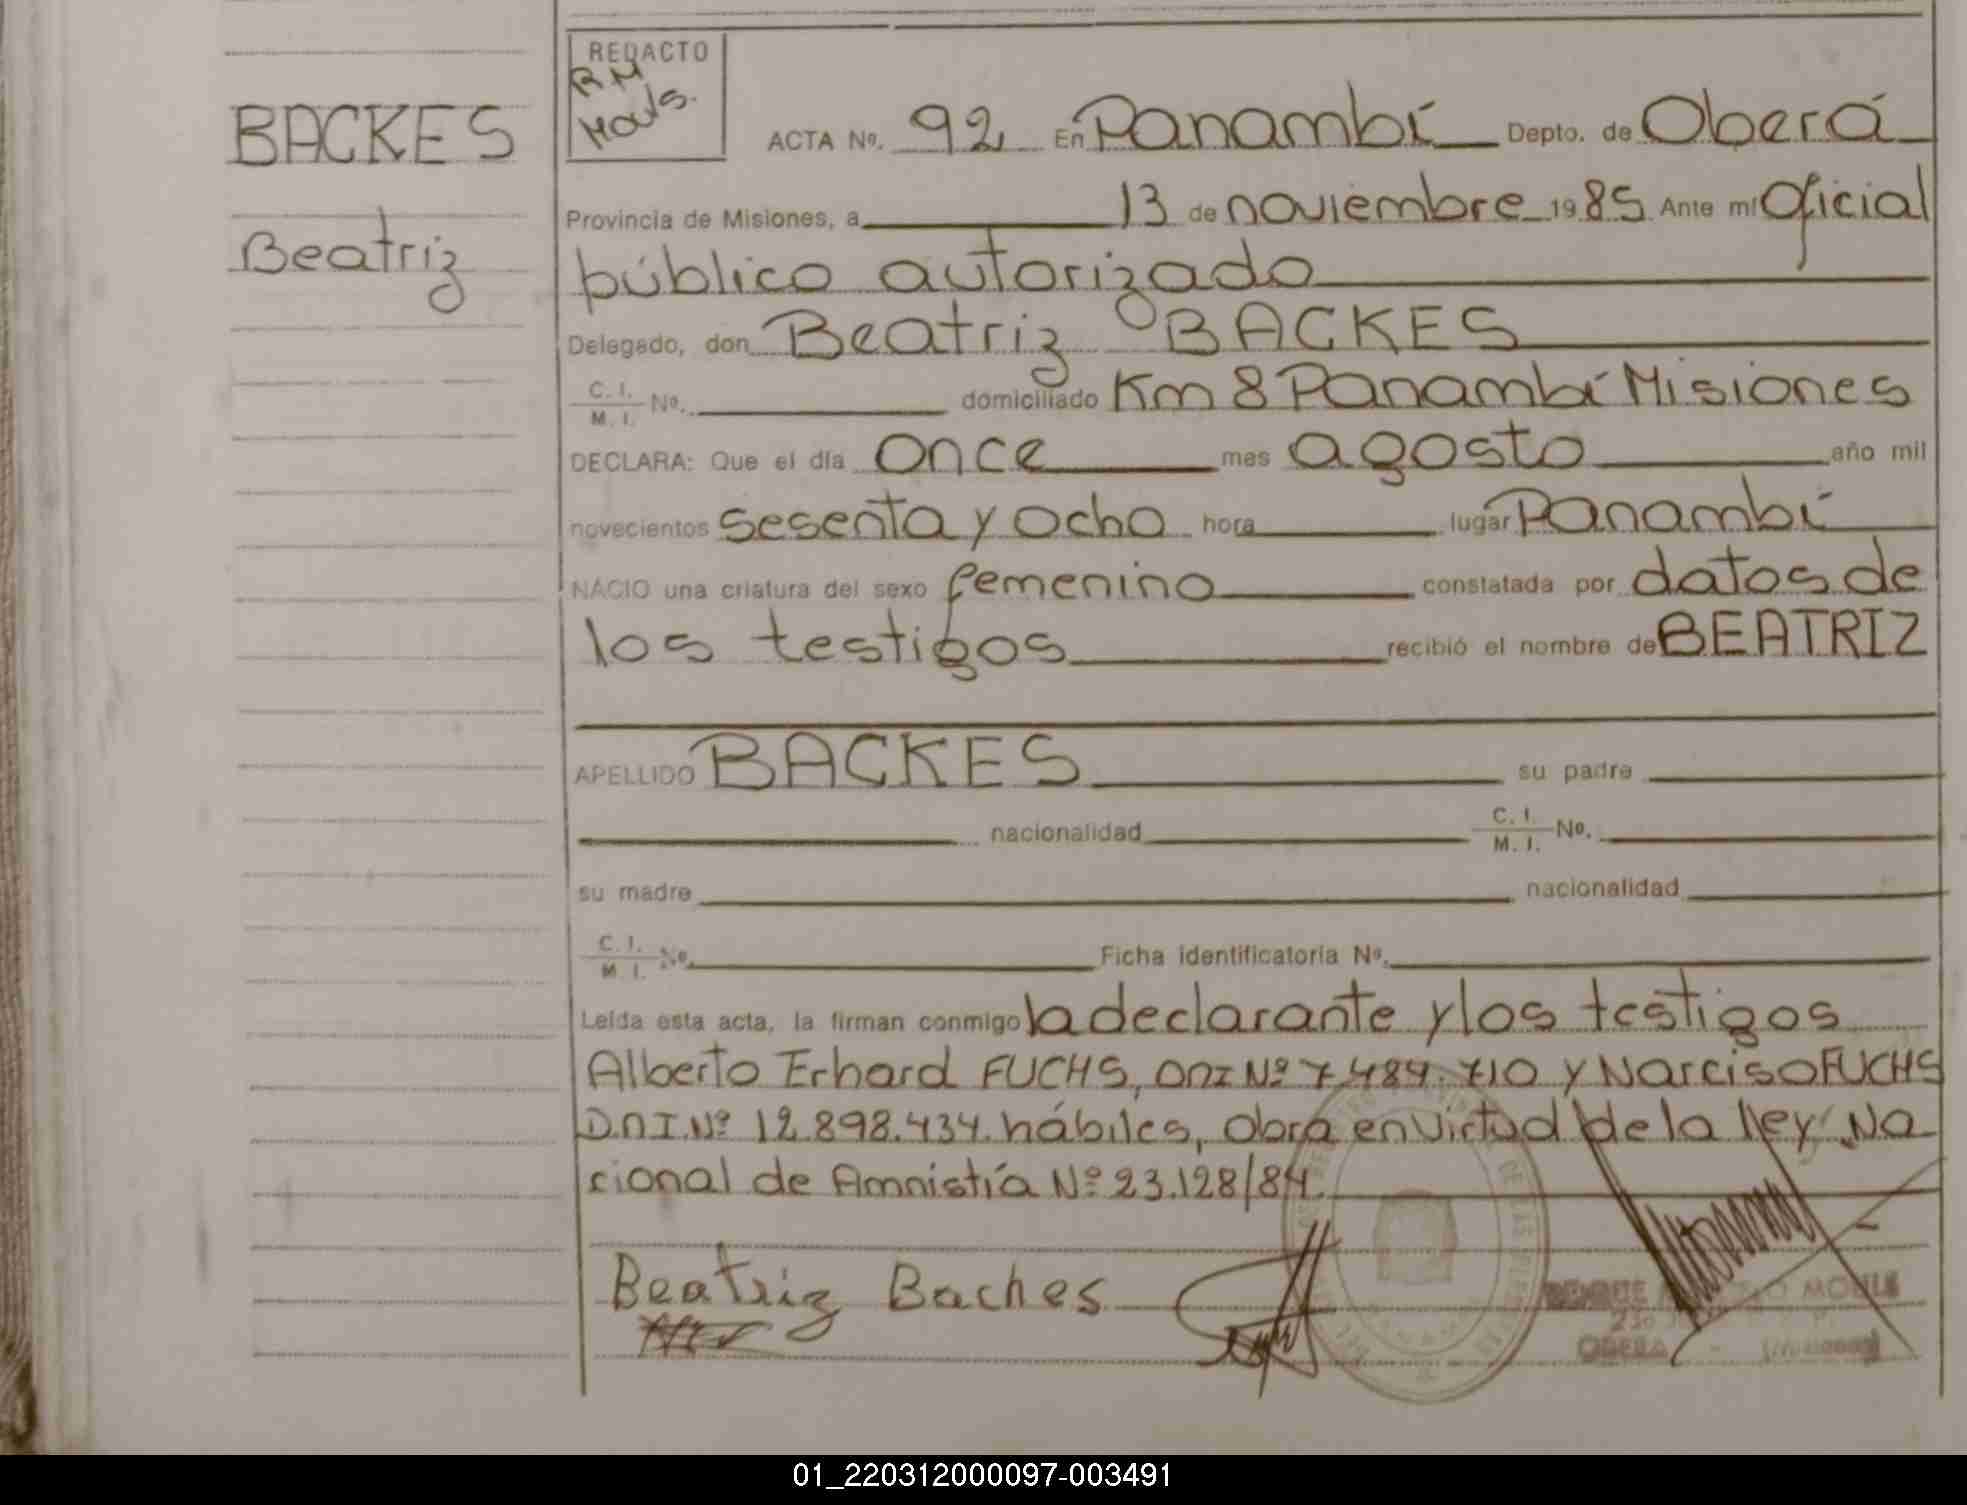 BACKES
Beatriz
REDACTO
RM
ACTA Nº. 92 En Panambí Depto. de Oberá
Provincia de Misiones, a 13 de noviembre 1985 Ante mí Oficial
público autorizado
Delegado, don Beatriz BACKES
C. I.
M. I. Nº. domiciliado Km 8 Panambí Misiones
DECLARA: Que el día once mes agosto año mil
novecientos sesenta y ocho hora lugar Panambí
NACIO una criatura del sexo femenino constatada por datos de
los testigos recibió el nombre de BEATRIZ
APELLIDO BACKES su padre
nacionalidad C. I.
M. I. Nº.
su madre nacionalidad
C. I.
M. I. Nº. Ficha identificatoria Nº.
Leída esta acta, la firman conmigo la declarante y los testigos
Alberto Erhard FUCHS, DNI Nº 7.484.710 y Narciso FUCHS
D.N.I. Nº 12.898.434. hábiles, obra en virtud de la ley Na
cional de Amnistía Nº 23.128/84.
Beatriz Baches
OBERA (Misiones)
01_220312000097-003491